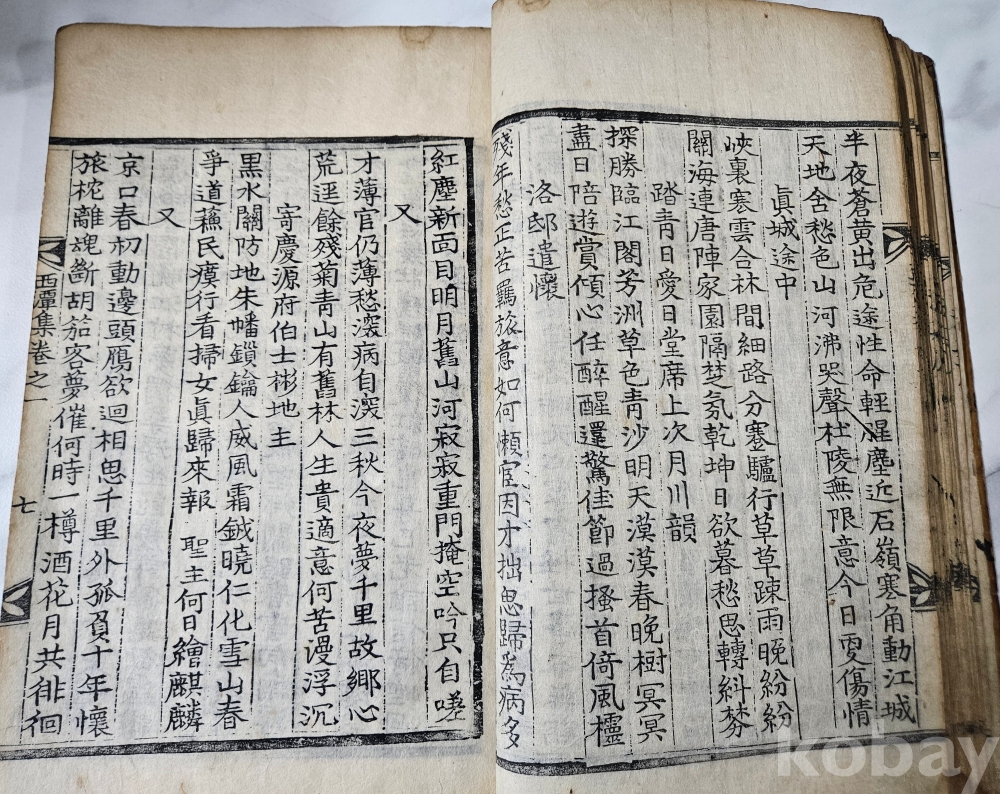 半夜蒼黃出危途性命輕腥塵近石嶺塞角動江城
天地含愁色山河沸哭聲杜陵無限意今日更傷情
眞城途中
峽裏寒雲合林間細路分蹇驢行草草踈雨晩紛紛
關海連唐陣家園隔楚氛乾坤日欲暮愁思轉紏棼
踏靑日愛日堂席上次月川韻
探勝臨江閣芳洲草色靑沙明天漠漠春晩樹冥冥
盡日陪遊賞傾心任醉醒還驚佳節過搔首倚風欞
洛邸遣懷
殘年愁正苦羇旅意如何懶宦因才拙思歸爲病多
紅塵新面目明月舊山河寂寂重門掩空吟只自嗟
又
才薄官仍薄愁深病自深三秋今夜夢千里故鄕心
荒逕餘殘菊靑山有舊林人生貴適意何苦謾浮沉
寄慶源府伯士彬地主
黑水關防地朱幡鎖鑰人威風霜鉞曉仁化雪山春
爭道蘓民瘼行看掃女眞歸來報 聖主何日繪麒麟
又
京口春初動邊頭鴈欲迴相思千里外孤負十年懷
旅枕離魂斷胡笳客夢催何時一樽酒花月共徘徊
西潭集卷之一
七
kobay